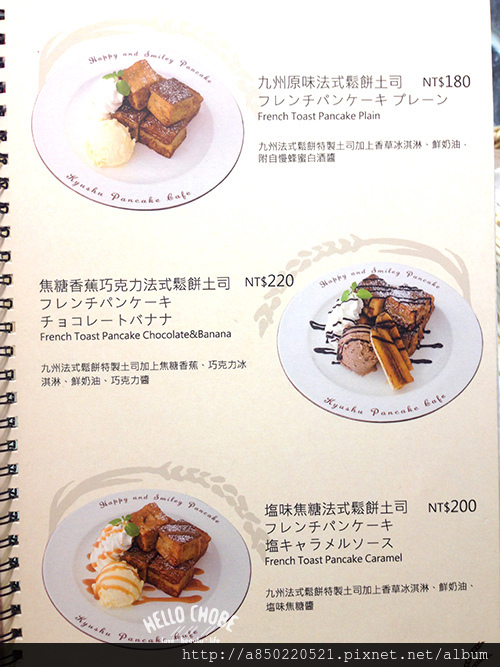 Happy and Smiley Pancake
Kyushu Pancake Cafe
九州原味法式鬆餅土司 NT$180
フレンチパンケーキ プレーン
French Toast Pancake Plain
九州法式鬆餅特製土司加上香草冰淇淋、鮮奶油，
附自慢蜂蜜白酒醬
焦糖香蕉巧克力法式鬆餅土司 NT$220
フレンチパンケーキ
チョコレートバナナ
French Toast Pancake Chocolate&Banana
九州法式鬆餅特製土司加上焦糖香蕉、巧克力冰
淇淋、鮮奶油、巧克力醬
Happy and Smiley Pancake
Kyushu Pancake Cafe
Happy and Smiley Pancake
Kyushu Pancake Cafe
塩味焦糖法式鬆餅土司 NT$200
フレンチパンケーキ
塩キャラメルソース
French Toast Pancake Caramel
九州法式鬆餅特製土司加上香草冰淇淋、鮮奶油、
塩味焦糖醬
HELLO CHOBE
http://a850220521.pixnet.net/album